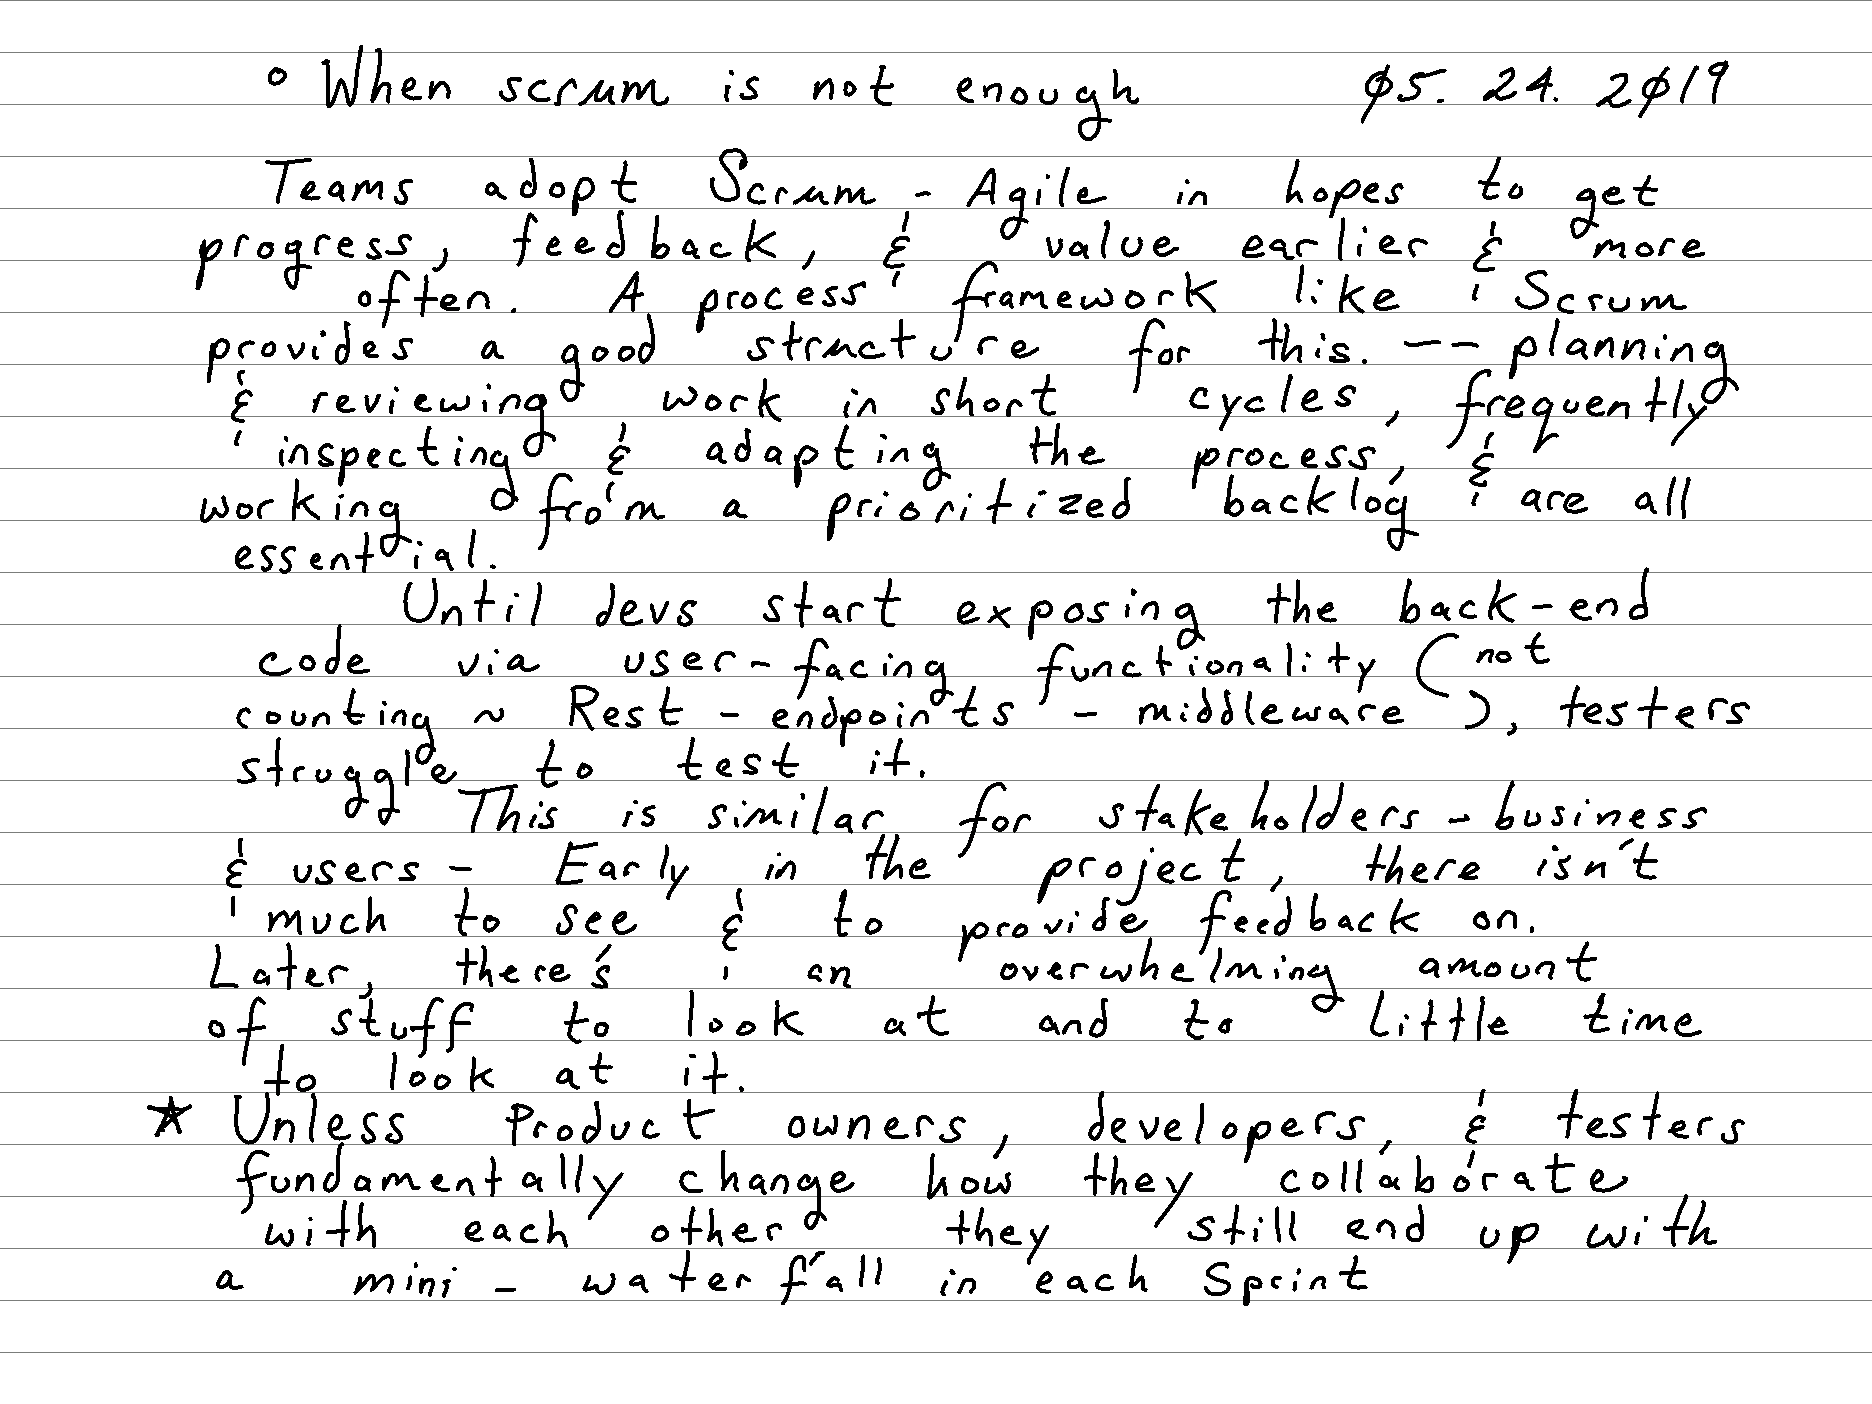 ° When scrum is not enough 05. 24. 2019
Teams adopt Scrum - Agile in hopes to get
progress, feedback, & value earlier & more
often. A process framework like Scrum
provides a good structure for this. -- planning
& reviewing work in short cycles, frequently
inspecting & adapting the process, &
working from a prioritized backlog are all
essential.
Until devs start exposing the back-end
code via user-facing functionality (not
counting ~ Rest - endpoints - middleware), testers
struggle to test it.
This is similar for stakeholders - business
& users - Early in the project, there isn't
much to see & to provide feedback on.
Later, there's an overwhelming amount
of stuff to look at and to little time
to look at it.
★ Unless Product owners, developers, & testers
fundamentally change how they collaborate
with each other they still end up with
a mini - waterfall in each Sprint